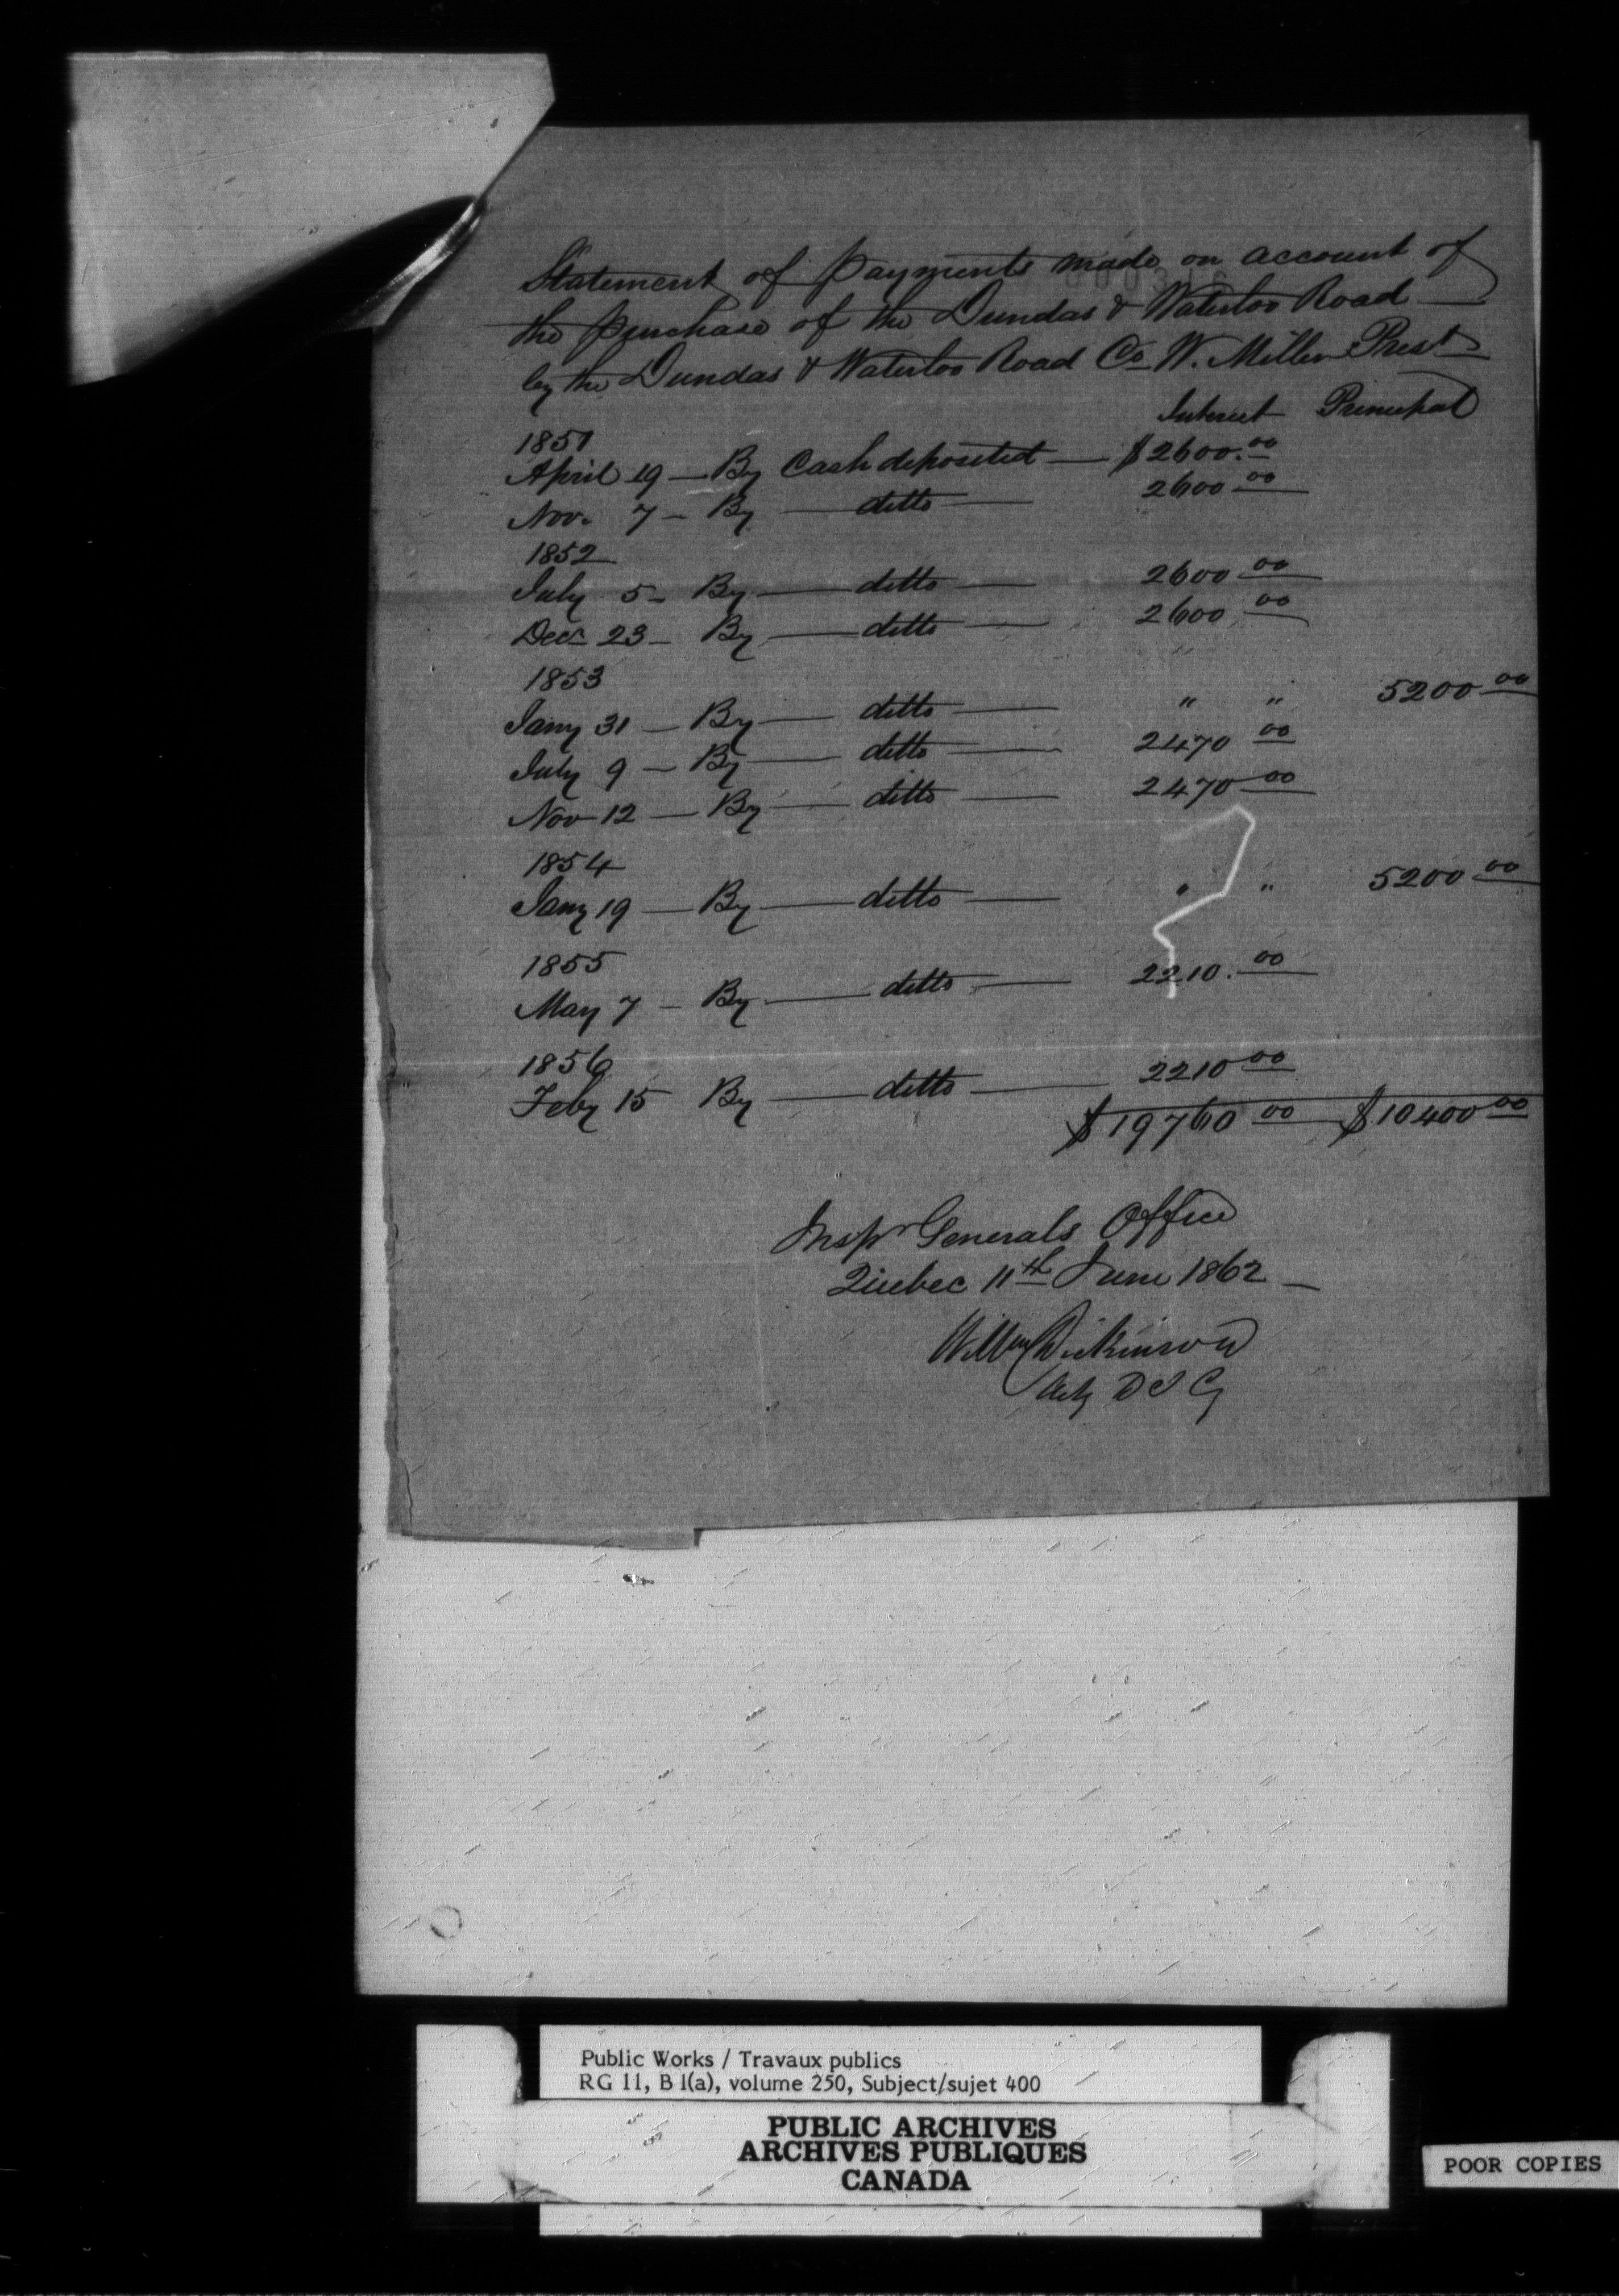 Statement of Payments made on account of
the purchase of the Dundas & Waterloo Road
by the Dundas & Waterloo Road Co W. Miller Prest
Interest Principal
1851
April 19 — By Cash deposited — $2600.00
Nov. 7 — By — ditto — 2600 00
1852
July 5 — By — ditto — 2600 00
Decr 23 — By — ditto — 2600 00
1853
Jany 31 — By — ditto — " " 5200 00
July 9 — By — ditto — 2470 00
Nov 12 — By — ditto — 2470 00
1854
Jany 19 — By — ditto — " " 5200 00
1855
May 7 — By — ditto — 2210.00
1856
Feby 15 By — ditto — 2210 00
$19760 00 — $10400 00
Inspr Generals Office
Quebec 11th June 1862 —
Willm Dickinson
Actg D I G
Public Works / Travaux publics
RG 11, B 1(a), volume 250, Subject/sujet 400
PUBLIC ARCHIVES
ARCHIVES PUBLIQUES
CANADA
POOR COPIES